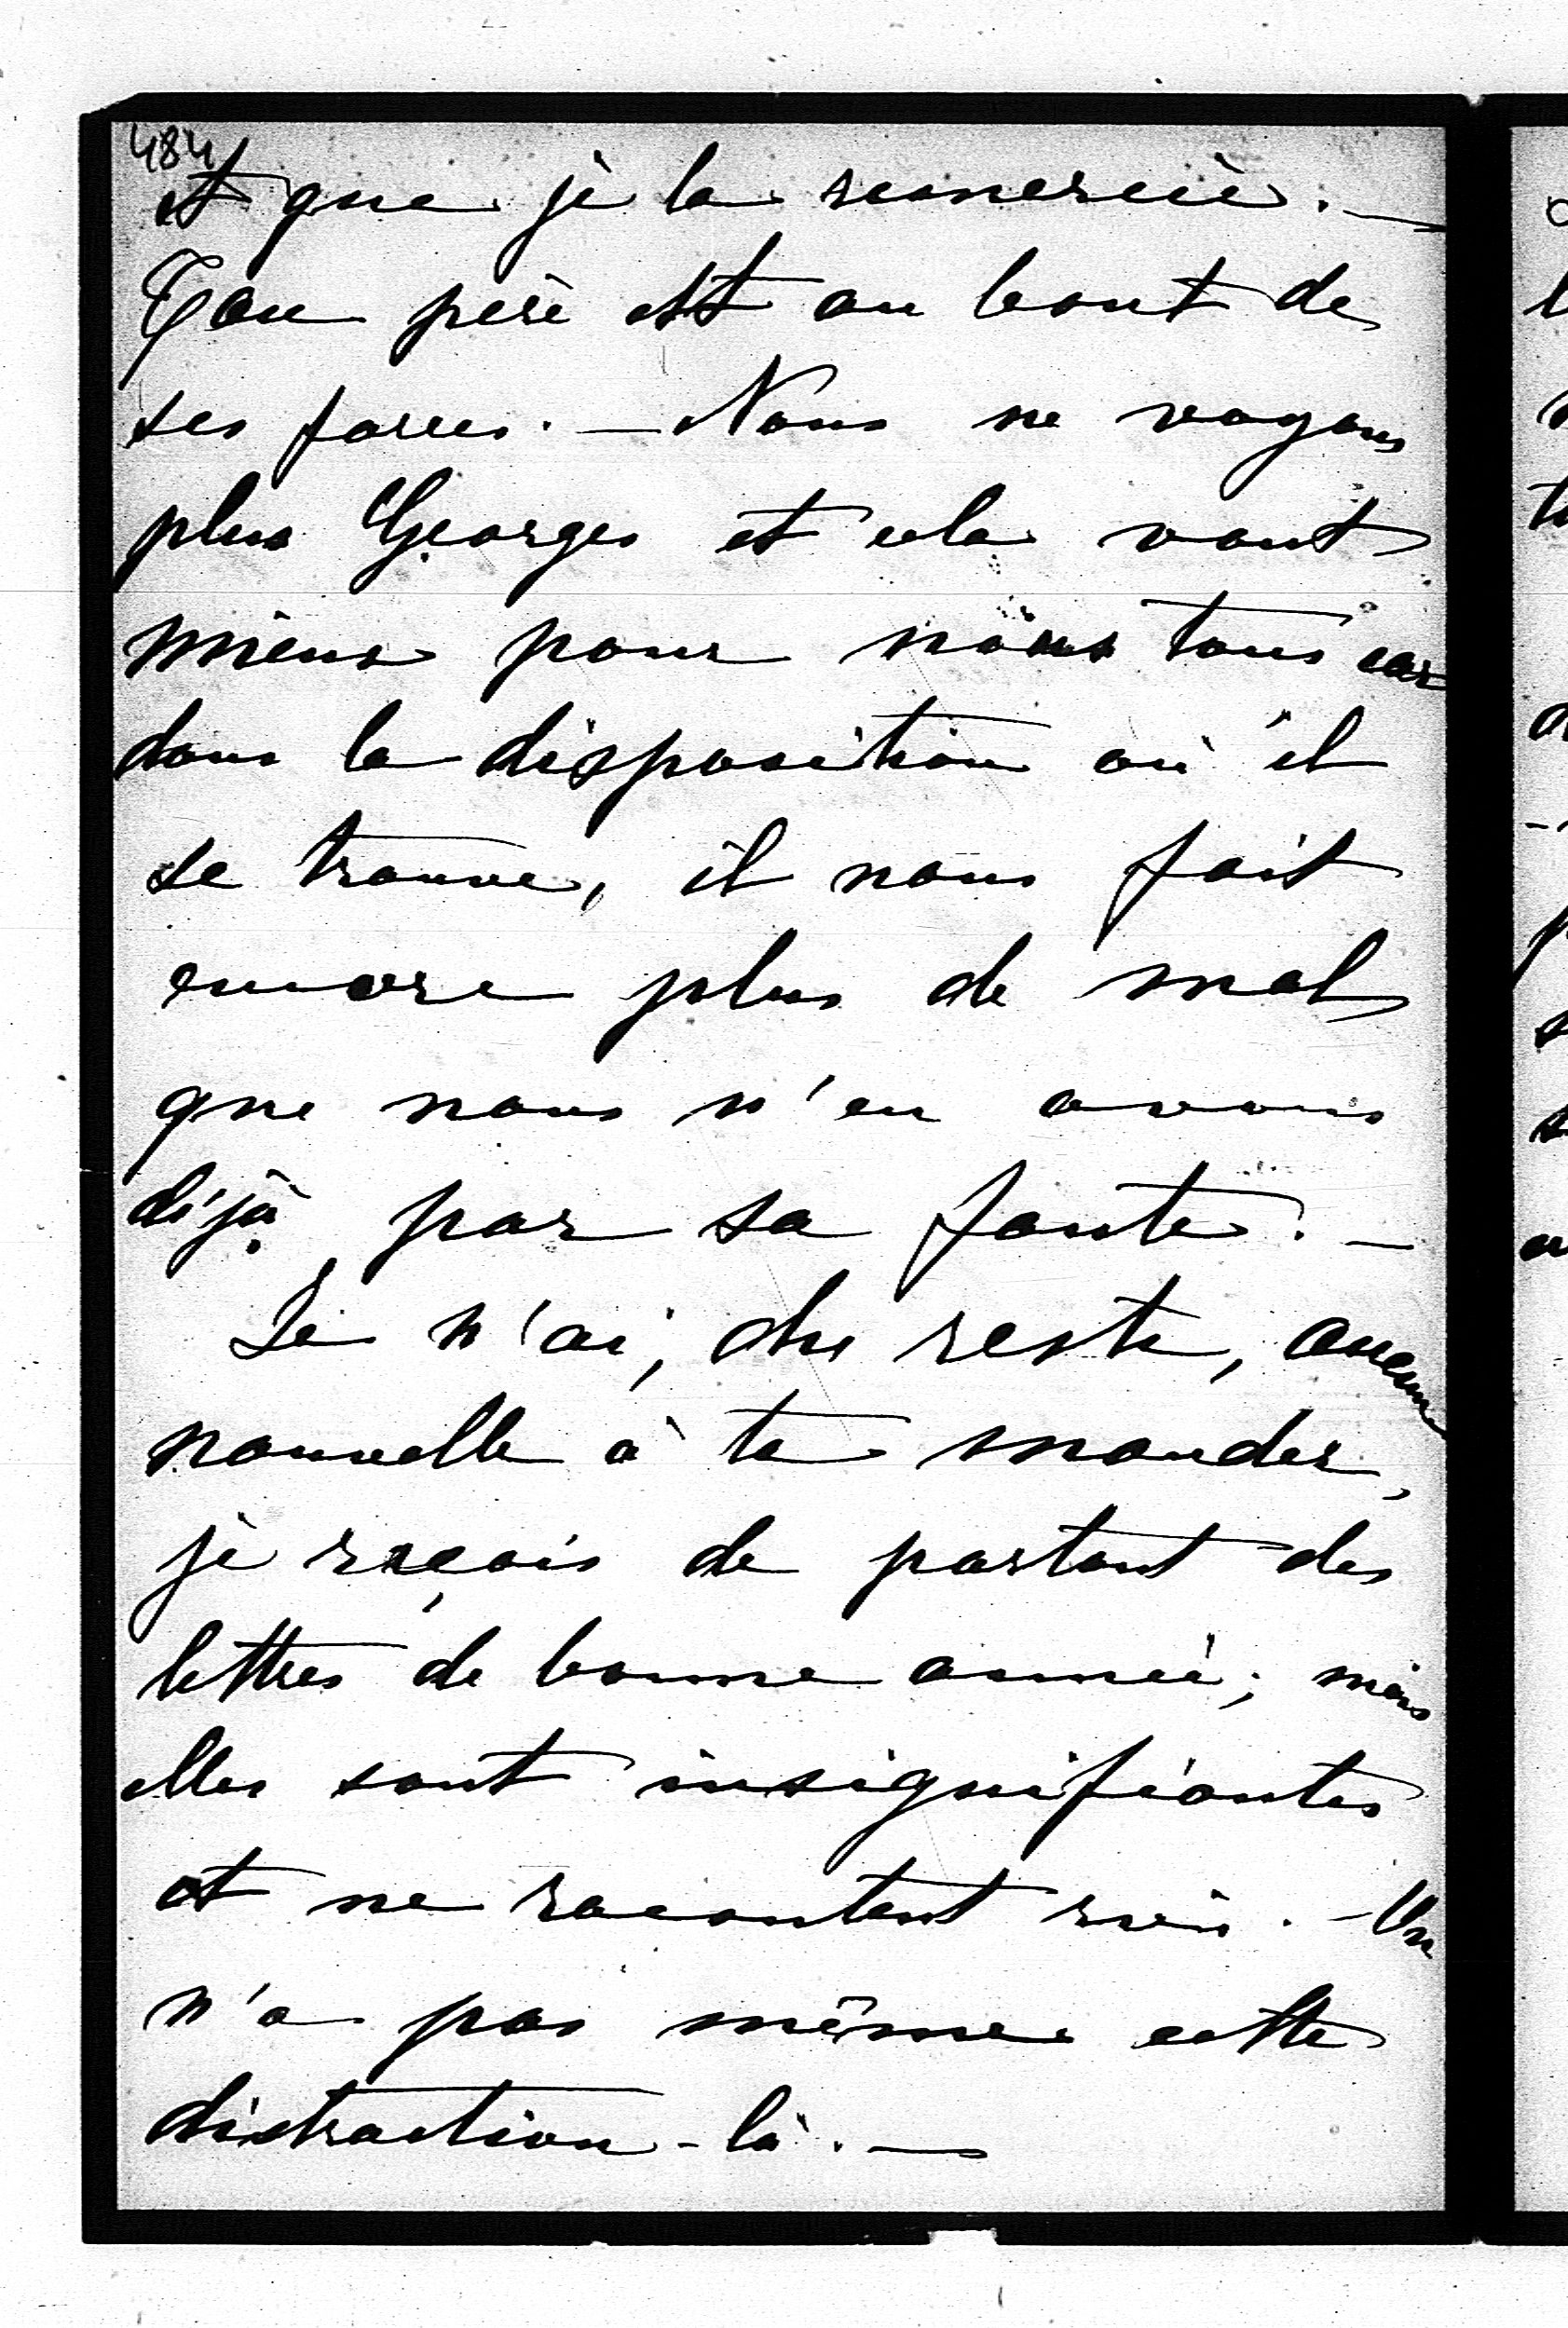 484
et que je la remercie. —
Ton père est au bout de
ses forces. — Nous ne voyons
plus Georges et cela vaut
mieux pour nous tous car
dans la disposition où il
se trouve, il nous fait
encore plus de mal
que nous n'en avons
déjà par sa faute. —
Je n'ai, du reste, aucune
nouvelle à te mander,
je reçois de partout des
lettres de bonne année; mais
elles sont insignifiantes
et ne racontent rien. - On
n'a pas même cette
distraction-là. —